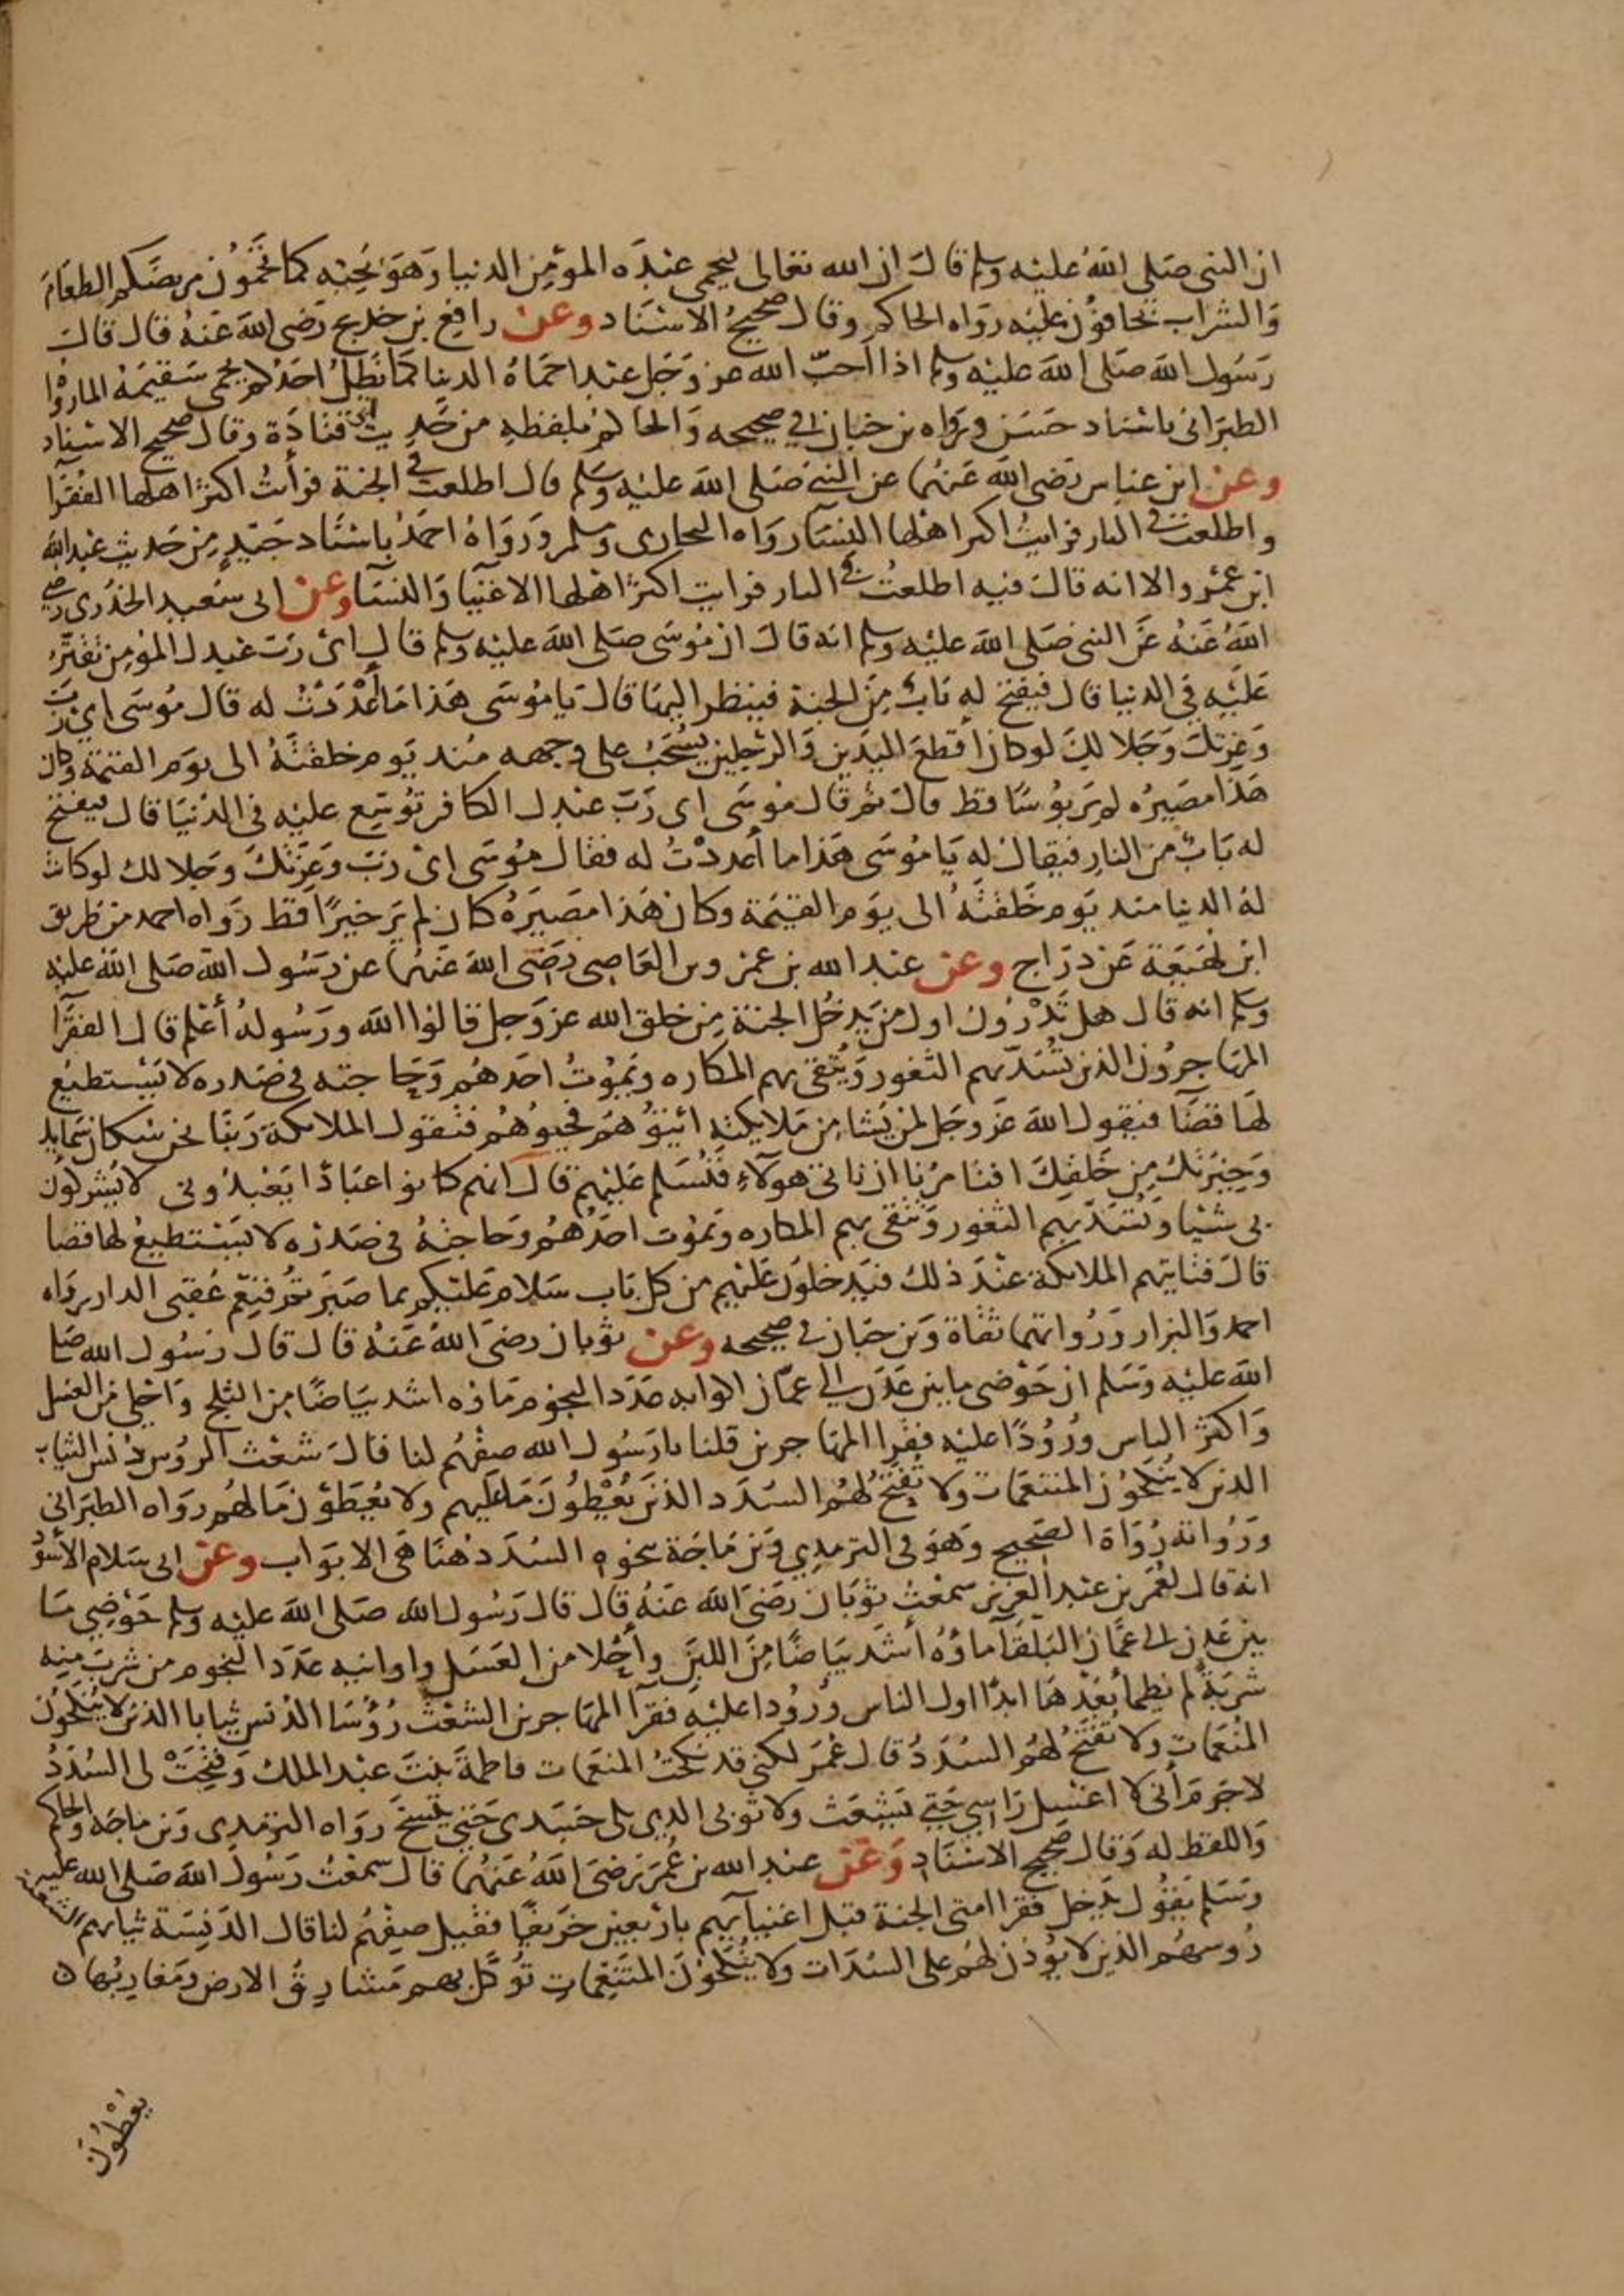 ان النبي صلى الله عليه وسلم قال ان الله تعالى ليحمي عبده المومن الدنيا وهو يحبه كما تحمون مريضكم الطعام
والشراب تخافون عليه رواه الحاكم وقال صحيح الاسناد وعن رافع بن خديج رضي الله عنه قال قال
رسول الله صلى الله عليه وسلم اذا احب الله عز وجل عبدا حماه الدنيا كما يظل احدكم يحمي سقيمه الما رواه
الطبراني باسناد حسن ورواه بن حبان في صحيحه والحاكم بلفظه من حديث ابي قتادة وقال صحيح الاسناد
وعن ابن عباس رضي الله عنهما عن النبي صلى الله عليه وسلم قال اطلعت في الجنة فرأيت اكثر اهلها الفقرآ
واطلعت في النار فرايت اكثر اهلها النسآ رواه البخاري ومسلم ورواه احمد باسناد جيد من حديث عبد الله
ابن عمرو الا انه قال فيه اطلعت في النار فرايت اكثر اهلها الاغنيا والنسآ وعن ابي سعيد الخدري رضي
الله عنه عن النبي صلى الله عليه وسلم انه قال ان موسى صلى الله عليه وسلم قال اي رب عبدك المؤمن تقتر
عليه في الدنيا قال فيفتح له باب من الجنة فينظر اليها قال يا موسى هذا ما أعددت له قال موسى اي رب
وعزتك وجلالك لو كان أقطع اليدين والرجلين يسحب على وجهه منذ يوم خلقته الى يوم القيمة وكان
هذا مصيره لم ير بؤسا قط قال ثم قال موسى اي رب عبدك الكافر توسع عليه في الدنيا قال فيفتح
له باب من النار فيقال له يا موسى هذا ما أعددت له فقال موسى اي رب وعزتك وجلالك لو كانت
له الدنيا منذ يوم خلقته الى يوم القيمة وكان هذا مصيره كان لم ير خيرا قط رواه احمد من طريق
ابن لهيعة عن دراج وعن عبد الله بن عمرو بن العاصي رضي الله عنهما عن رسول الله صلى الله عليه
وسلم انه قال هل تدرون اول من يدخل الجنة من خلق الله عز وجل قالوا الله ورسوله أعلم قال الفقرآ
المهاجرون الذين تسد بهم الثغور ويتقى بهم المكاره ويموت احدهم وحاجته في صدره لا يستطيع
لها قضآ فيقول الله عز وجل لمن يشا من ملايكته ائتوهم فحيوهم فتقول الملايكة ربنا نحن سكان سمايك
وخيرتك من خلقك افتامرنا ان ناتي هولآء فنسلم عليهم قال انهم كانوا عبادا يعبدوني لا يشركون
بي شيئا وتسد بهم الثغور وتتقى بهم المكاره ويموت احدهم وحاجته في صدره لا يستطيع لها قضا
قال فتاتيهم الملايكة عند ذلك فيدخلون عليهم من كل باب سلام عليكم بما صبرتم فنعم عقبى الدار رواه
احمد والبزار ورواتهما ثقاة وبن حبان في صحيحه وعن ثوبان رضي الله عنه قال قال رسول الله صلى
الله عليه وسلم ان حوضي ما بين عدن الى عمان اكوابه عدد النجوم ماؤه اشد بياضا من الثلج واحلى من العسل
واكثر الناس ورودا عليه فقرا المهاجرين قلنا يا رسول الله صفهم لنا قال شعث الروس دنس الثياب
الذين لا ينكحون المتنعمات ولا تفتح لهم السدد الذين يعطون ما عليهم ولا يعطون ما لهم رواه الطبراني
ورواته رواة الصحيح وهو في الترمذي وبن ماجة بنحوه السدد هنا هي الابواب وعن ابي سلام الأسود
انه قال لعمر بن عبد العزيز سمعت ثوبان رضي الله عنه قال قال رسول الله صلى الله عليه وسلم حوضي ما
بين عدن الى عمان البلقآ ماؤه أشد بياضا من اللبن وأحلا من العسل واوانيه عدد النجوم من شرب منه
شربة لم يظمأ بعدها ابدا اول الناس ورودا عليه فقرآ المهاجرين الشعث رؤسا الدنس ثيابا الذين لا ينكحون
المنعمات ولا تفتح لهم السدد قال عمر لكني قد نكحت المنعمات فاطمة بنت عبد الملك وفتحت لي السدد
لا جرم أني لا اغسل راسي حتى يشعث ولا ثوبي الذي يلي جسدي حتى يتسخ رواه الترمذي وبن ماجه والحاكم
واللفظ له وقال صحيح الاسناد وعن عبد الله بن عمر رضي الله عنهما قال سمعت رسول الله صلى الله عليه
وسلم يقول يدخل فقرا امتي الجنة قبل اغنيآيهم باربعين خريفا فقيل صفهم لنا قال الدنسة ثيابهم الشعثة
روسهم الذين لا يوذن لهم على السدات ولا ينكحون المتنعمات توكل بهم مشارق الارض ومغاربها
يعطون